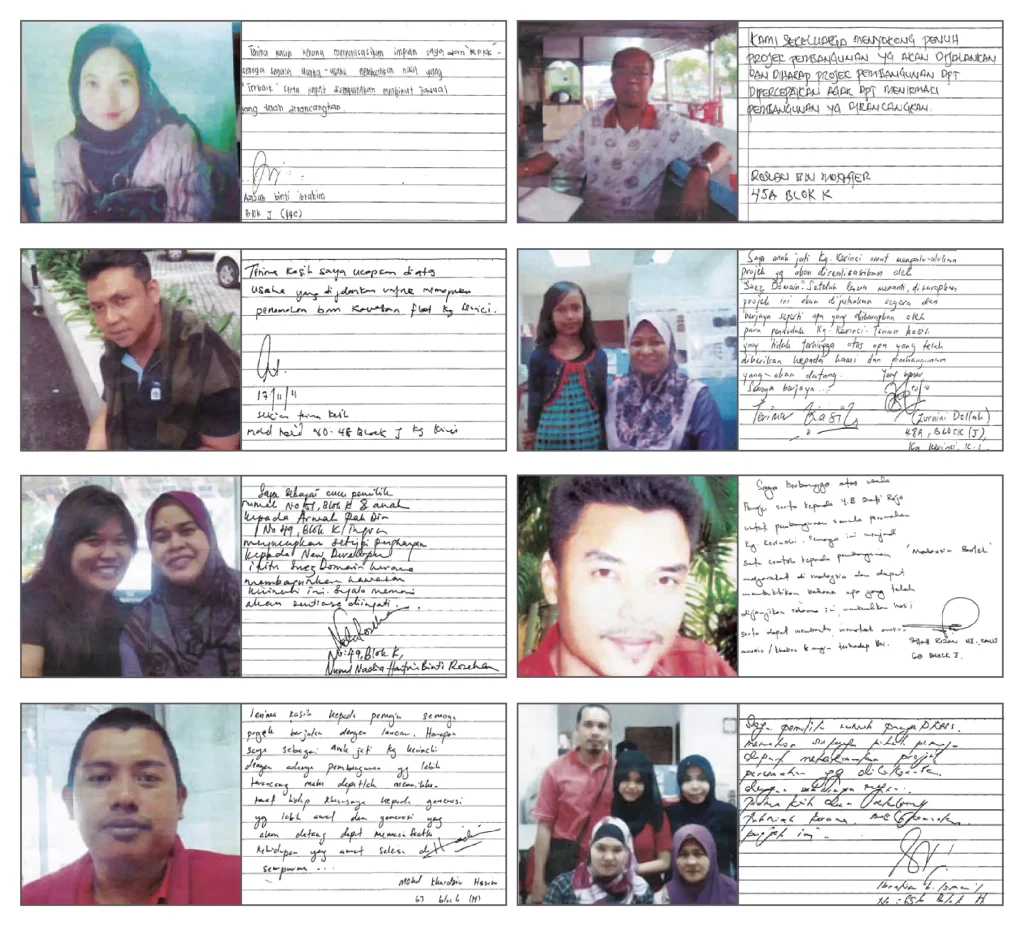 Terima kasih kerana merealisasikan impian saya dan "KPKK".
semoga segala usaha-usaha membuahkan hasil yang
"Terbaik" serta dapat disempurnakan mengikut jadual
yang telah dirancangkan.
binti Ibrahim
Blok J (44C)
KAMI SEKELUARGA MENYOKONG PENUH
PROJEK PEMBANGUNAN YG AKAN DIJALANKAN
DAN DIHARAP PROJEK PEMBANGUNAN DPT
DIPERCEPATKAN AGAR DPT MENIKMATI
PEMBANGUNAN YG DIRANCANGKAN.
ROSLAN BIN
45A BLOK K
Terima kasih saya ucapan diatas
usaha yang dijalankan untuk
bagi kawasan flat Kg Kerinci.
17/11/11
sekian terima kasih
Mohd NO. 48 Block J Kg Kerinci
Saya anak jati Kg. Kerinci amat mengalu-alukan
projek yg akan direalisasikan oleh
Suez Domain. Setelah lama menanti, diharapkan
projek ini akan dijalankan segera dan
berjaya seperti apa yang diharapkan oleh
para penduduk Kg. Kerinci. Terima kasih
yang tidak terhingga atas apa yang telah
diberikan kepada kami dan pembangunan
yang akan datang.
Semoga berjaya...
Yang benar
Terima Kasih
(Zuraini Dollah)
48A, BLOCK (J),
Kg Kerinci, K.L
Saya sebagai cucu pemilik
rumah No 51, Blok K & anak
kepada Arwah Pak Din
No 49, Blok K ingin
mengucapkan setinggi penghargaan
kepada New Developer
iaitu Suez Domain kerana
membangunkan kawasan
kerinchi ini. Segala memori
akan sentiasa diingati...
No: 49, Blok K,
Nurul Nadia Binti Roseham
Saya berbangga atas usaha
serta kepada Y.B Dato' Raja
untuk pembangunan semula perumahan
Kg. Kerinchi. Semoga ini menjadi
satu contoh kepada pembangunan 'Malaysia Boleh'
masyarakat di malaysia dan dapat
membuktikan bahawa apa yang telah
dijanjikan selama ini membuahkan hasil
serta dapat membantu
60 BLOCK J.
Terima kasih kepada pemaju semoga
projek berjalan dengan lancar. Harapan
saya sebagai anak jati kg kerinchi
dengan adanya pembangunan yg lebih
terancang maka dapatlah menaikkan
taraf hidup khususnya kepada generasi
yg lebih awal dan generasi yang
akan datang dapat menikmati
kehidupan yang amat selesa dan
sempurna...
Mohd Khairulnizar Hassim
63 block (H)
Saya pemilik rumah pangsa DBKL.
memohon supaya pihak pemaju
dapat melaksanakan projek
perumahan yg dicita-cita
dengan seberapa segera.
Terima kasih dan sekalung
Tahniah kerana
projek ini.
Ibrahim b. Ismail
No: Blok H